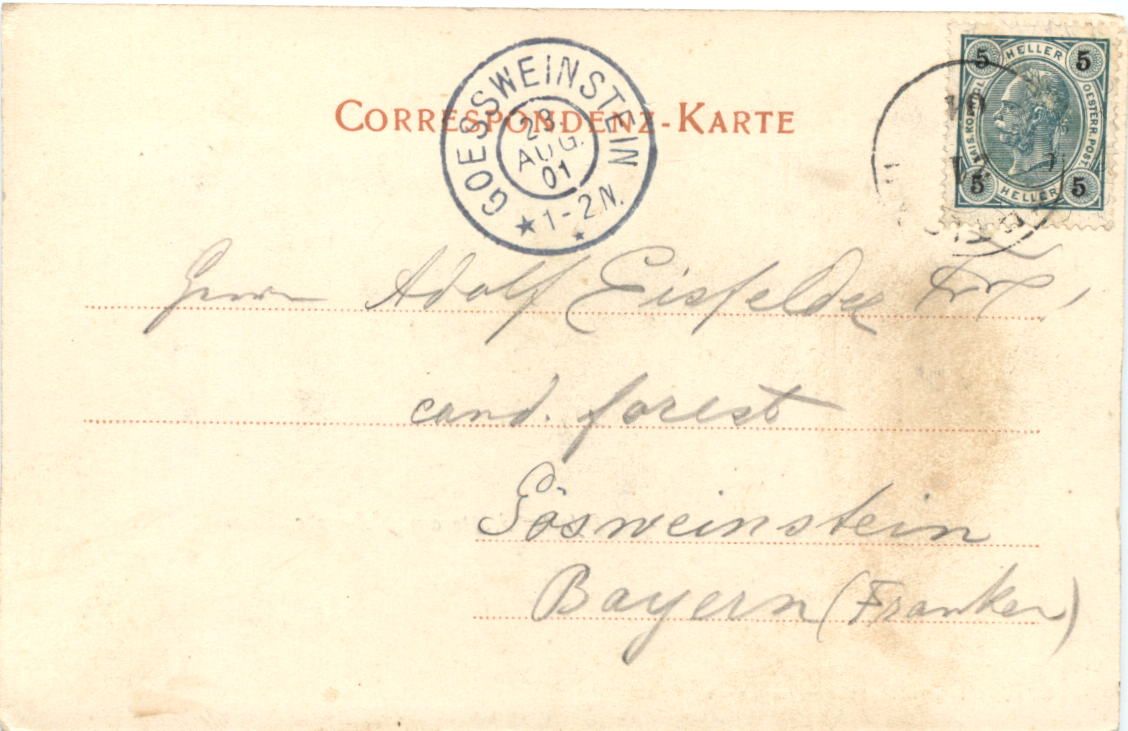 CORRESPONDENZ-KARTE
GOESSWEINSTEIN
23
AUG.
01
1-2 N.
5 HELLER 5
KAIS. KOENIGL. OESTERR. POST.
5 HELLER 5
Herrn Adolf Eisfelder
cand. forest
Gösweinstein
Bayern (Franken)